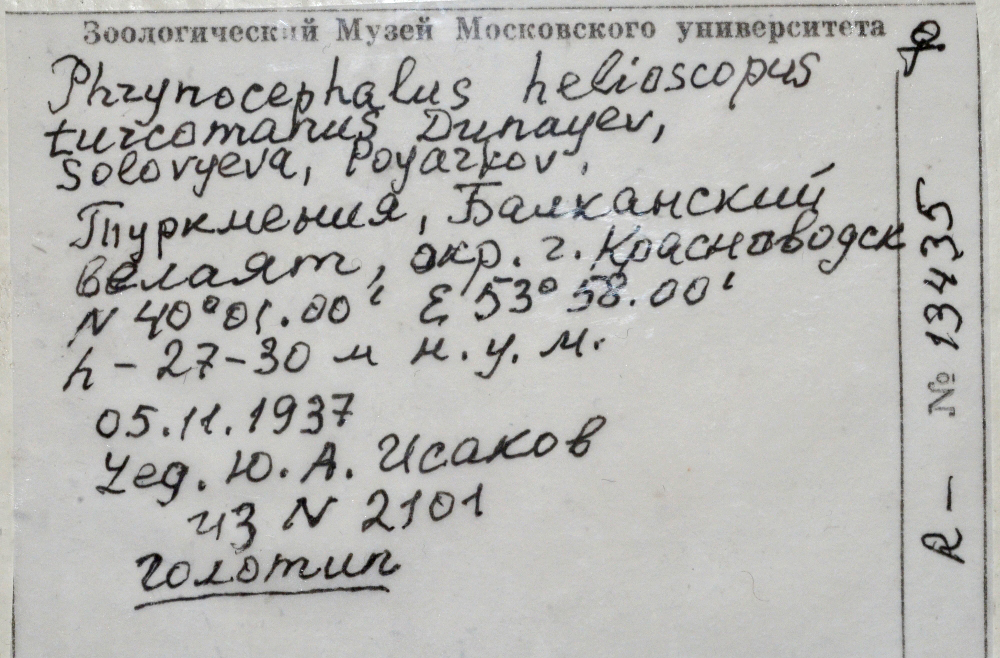 Зоологический Музей Московского университета
Phrynocephalus helioscopus
turcomanus Dunayev,
Solovyeva, Poyarkov.
Туркмения, Балканский
велаят, окр. г. Красноводск
N 40°01.00' E 53°58.00'
h - 27-30 м н. у. м.
05.11.1937
Лед. Ю. А. Исаков
из N 2101
Голотип
♀
R - № 13435